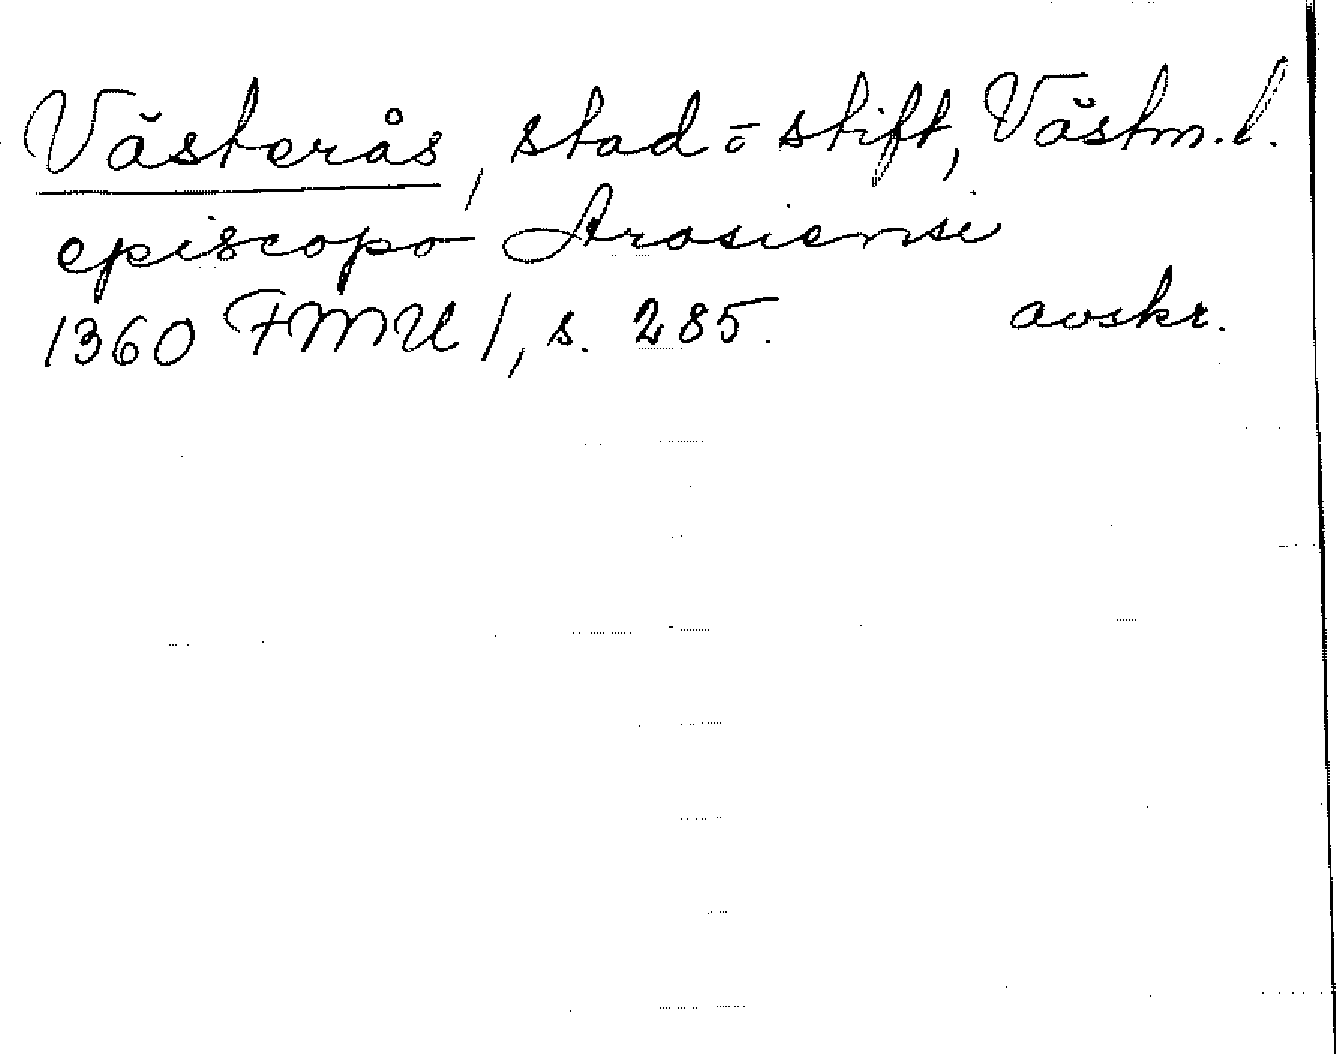 Västerås, stad o stift, Västm. l.
episcopo Arosiensi
1360 FMU 1, s. 285. avskr.